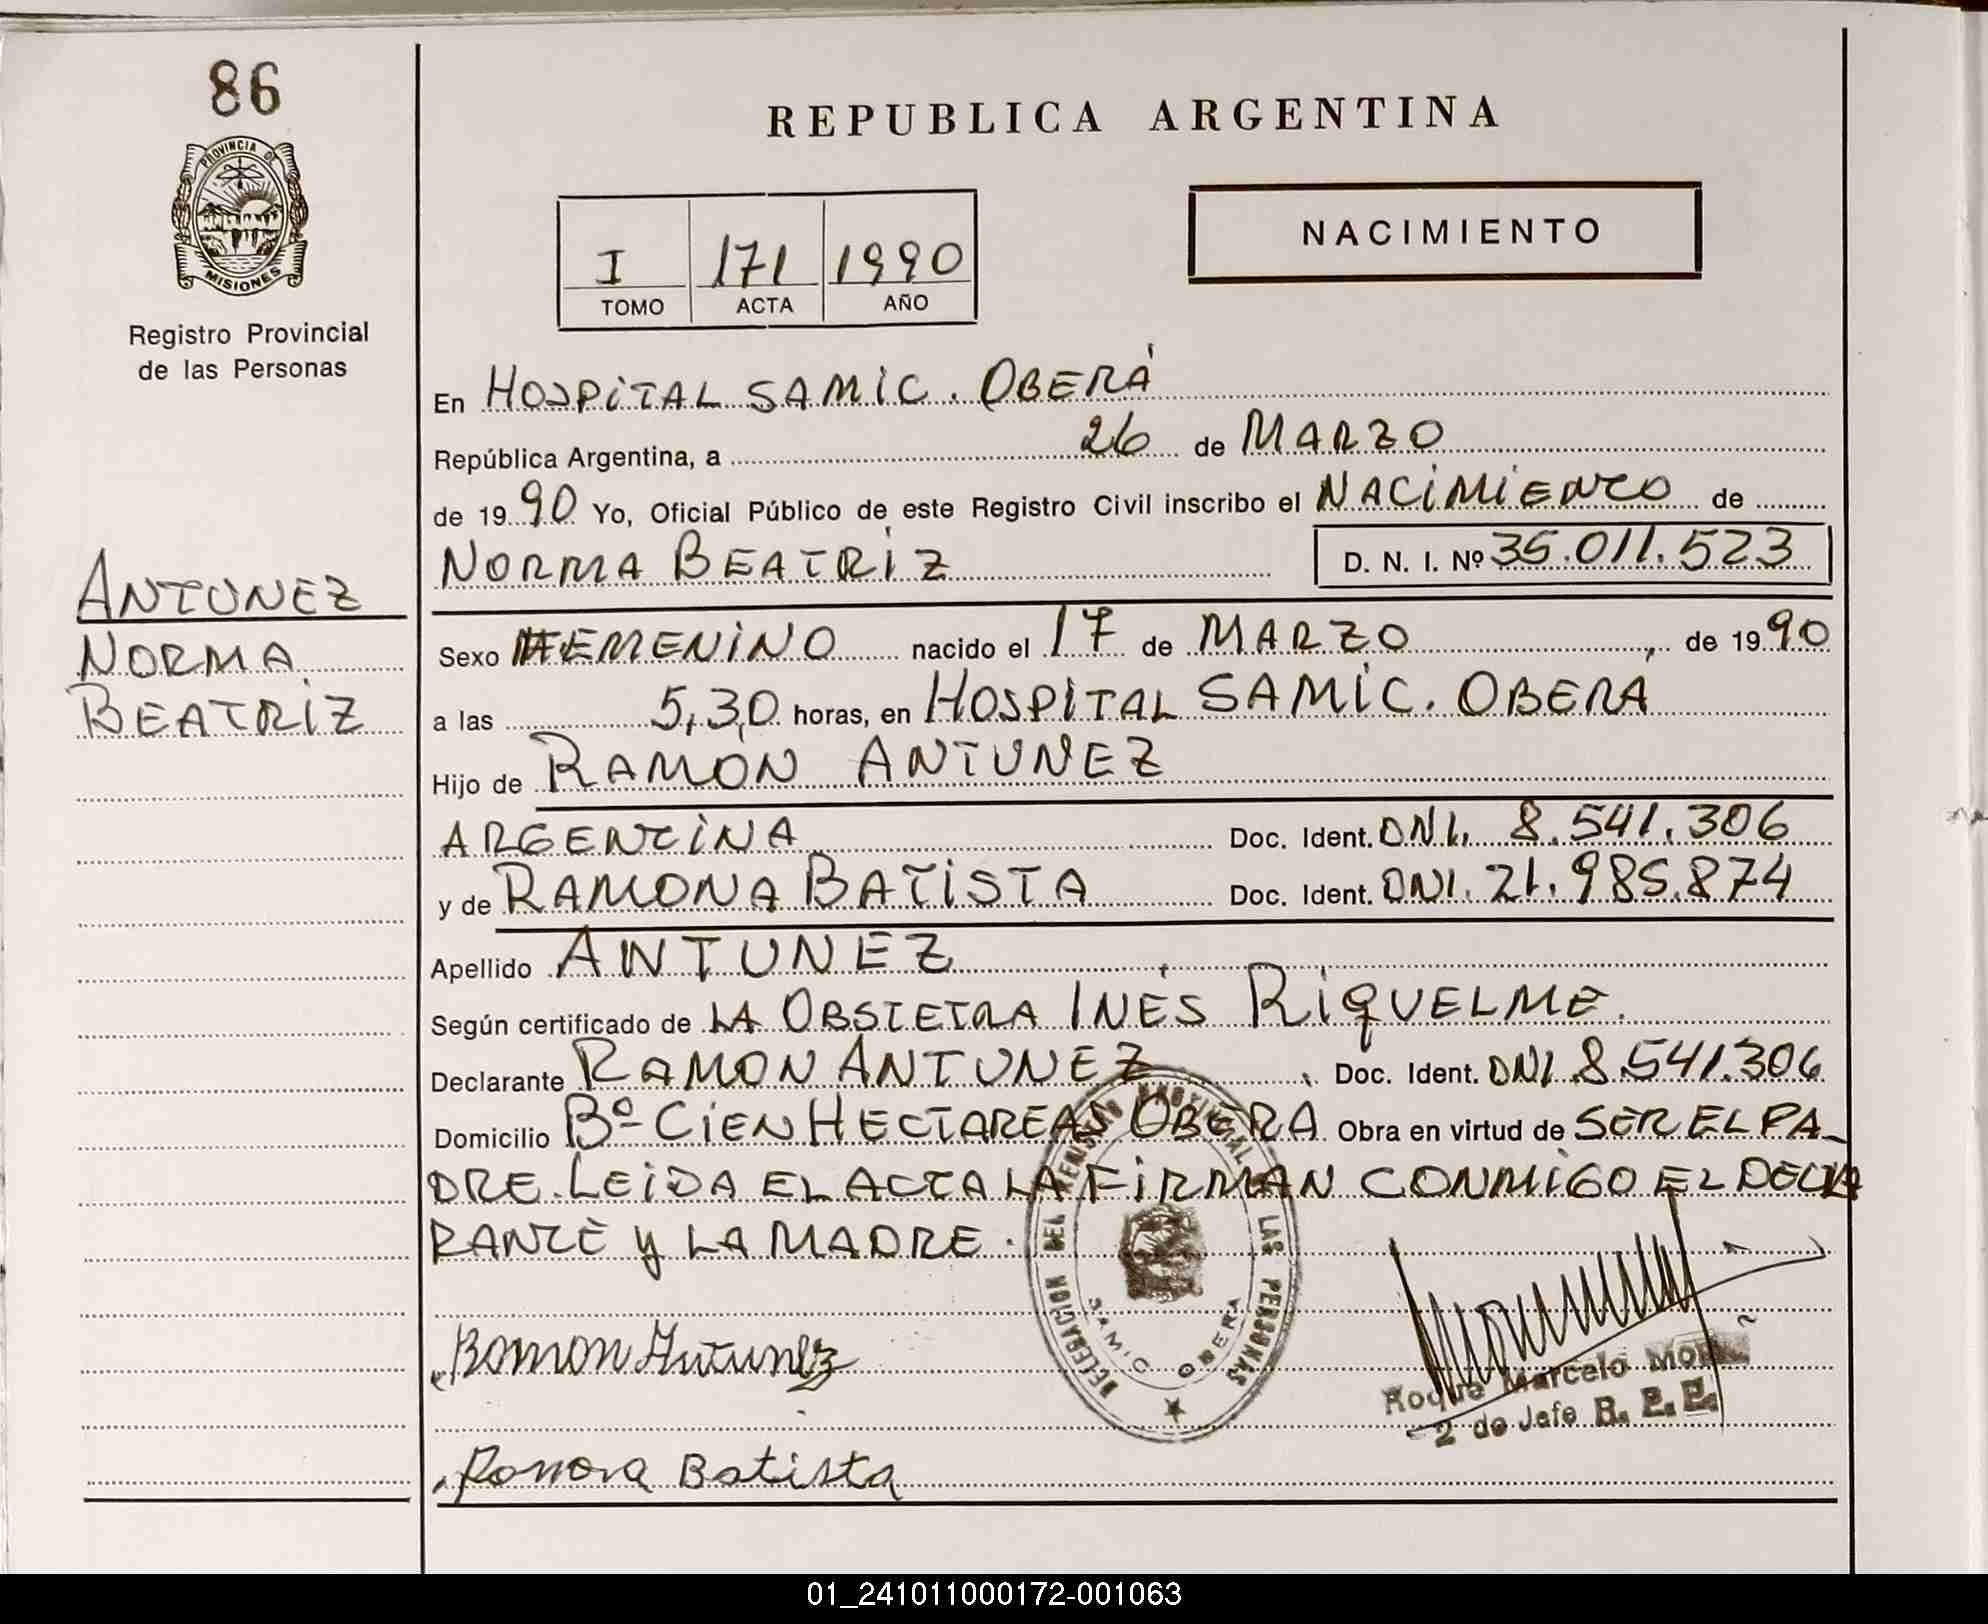 86
PROVINCIA DE
MISIONES
Registro Provincial
de las Personas
REPUBLICA ARGENTINA
NACIMIENTO
I 171 1990
TOMO ACTA AÑO
En HOSPITAL SAMIC. OBERÁ
República Argentina, a 26 de MARZO
de 1990 Yo, Oficial Público de este Registro Civil inscribo el NACIMIENTO de
NORMA BEATRIZ D. N. I. Nº 35.011.523
ANTUNEZ
NORMA
BEATRIZ
Sexo FEMENINO nacido el 17 de MARZO, de 1990
a las 5,30 horas, en HOSPITAL SAMIC. OBERÁ
Hijo de RAMÓN ANTUNEZ
ARGENTINA Doc. Ident. DNI. 8.541.306
y de RAMONA BATISTA Doc. Ident. DNI. 21.985.874
Apellido ANTUNEZ
Según certificado de LA OBSTETRA INÉS RIQUELME.
Declarante RAMON ANTUNEZ Doc. Ident. DNI 8.541.306
Domicilio Bº CIEN HECTAREAS OBERA Obra en virtud de SER EL PA-
DRE. LEIDA EL ACTA LA FIRMAN CONMIGO EL DECLA
RANTE Y LA MADRE.
Ramon Antunez
DELEGACION DEL REGISTRO PROVINCIAL DE LAS PERSONAS
SAMIC OBERA
Roque Marcelo
2 do Jefe R. P. P.
Ramona Batista
01_241011000172-001063